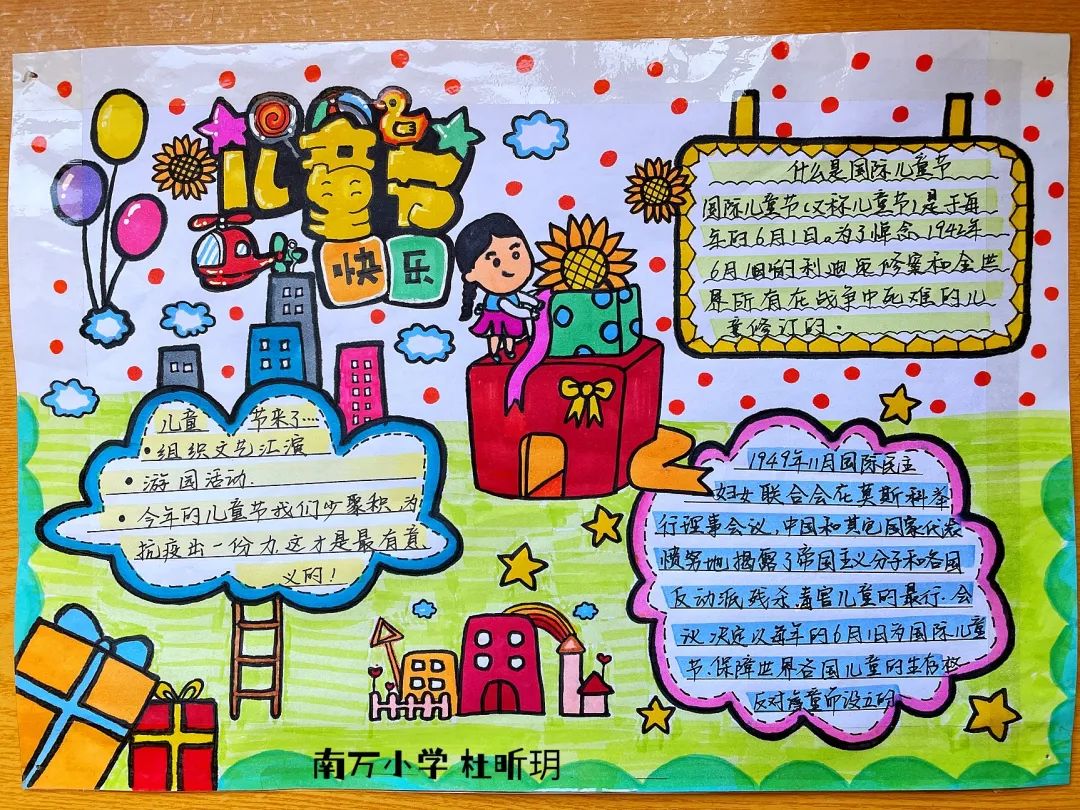 儿童节
快乐
什么是国际儿童节
国际儿童节（又称儿童节）是于每
年的6月1日。为了悼念1942年
6月1日的利迪策惨案和全世
界所有在战争中死难的儿
童修订的.
儿童 节来了....
• 组织文艺汇演
• 游园活动.
• 今年的儿童节我们少聚积,为
抗疫出一份力.这才是最有意
义的!
1949年11月国际民主
妇女联合会在莫斯科举
行理事会议,中国和其它国家代表
愤努地揭露了帝国主义分子和各国
反动派残杀.毒害儿童的最行.会
议决定以每年的6月1日为国际儿童
节.保障世界各国儿童的生存权
反对 童 设立的
南万小学 杜昕玥